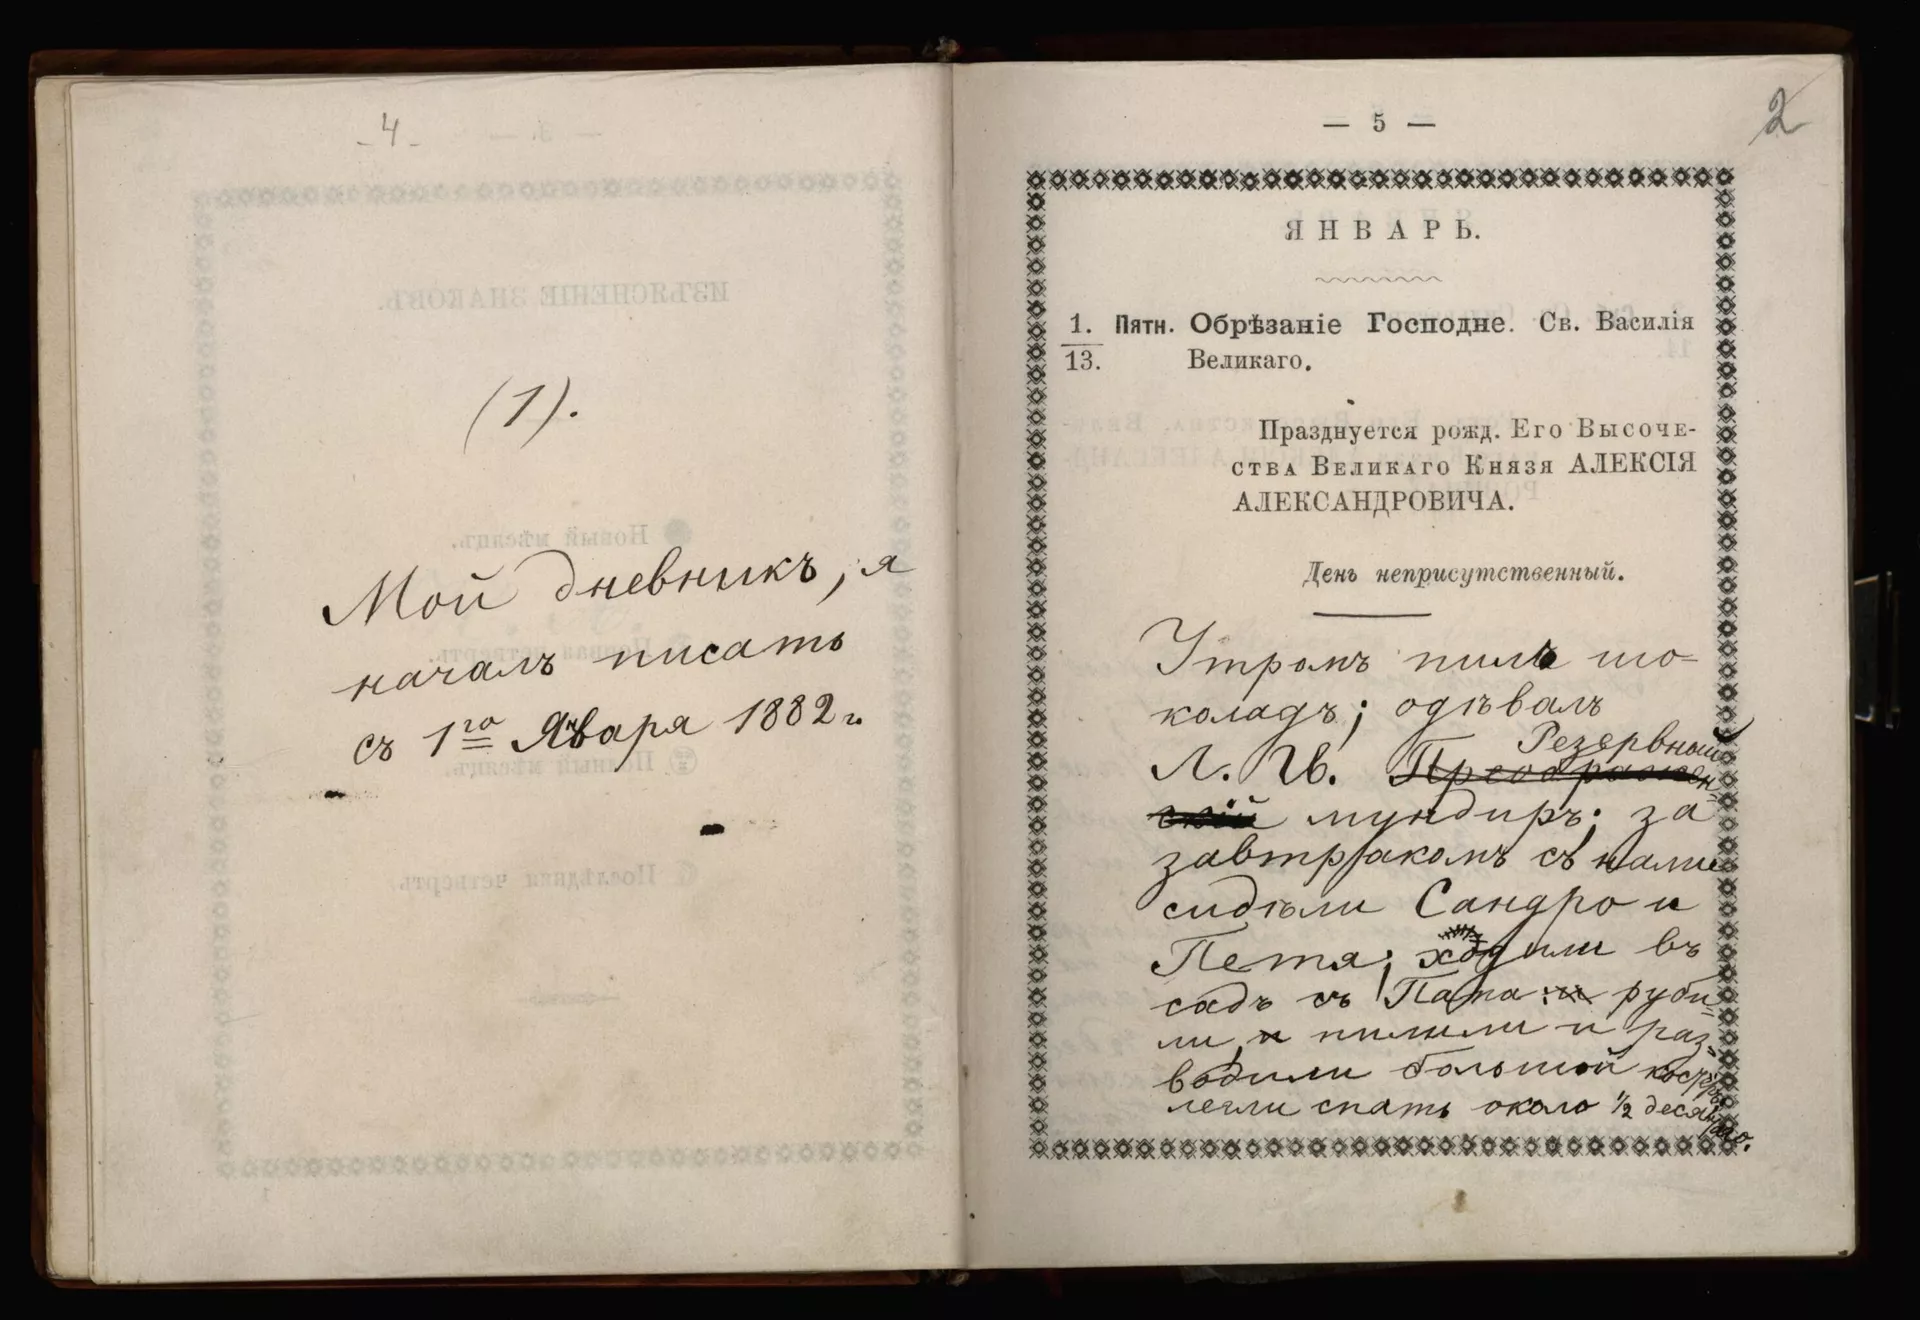 - 4 -
(1).
Мой дневникъ, я
началъ писать
съ 1го Января 1882 г.
2
— 5 —
ЯНВАРЬ.
1. Пятн. Обрѣзаніе Господне. Св. Василія
13. Великаго.
Празднуется рожд. Его Высоче-
ства Великаго Князя АЛЕКСІЯ
АЛЕКСАНДРОВИЧА.
День неприсутственный.
Утромъ пилъ шо=
коладъ; одѣвалъ
Резервный
Л. Гв. Преображен=
скій мундиръ; за
завтракомъ съ нами
сидѣли Сандро и
Петя; ходили въ
садъ съ Папа и руби=
ли, и пилили и раз=
водили большой костеръ.
легли спать около 1/2 десятаго.